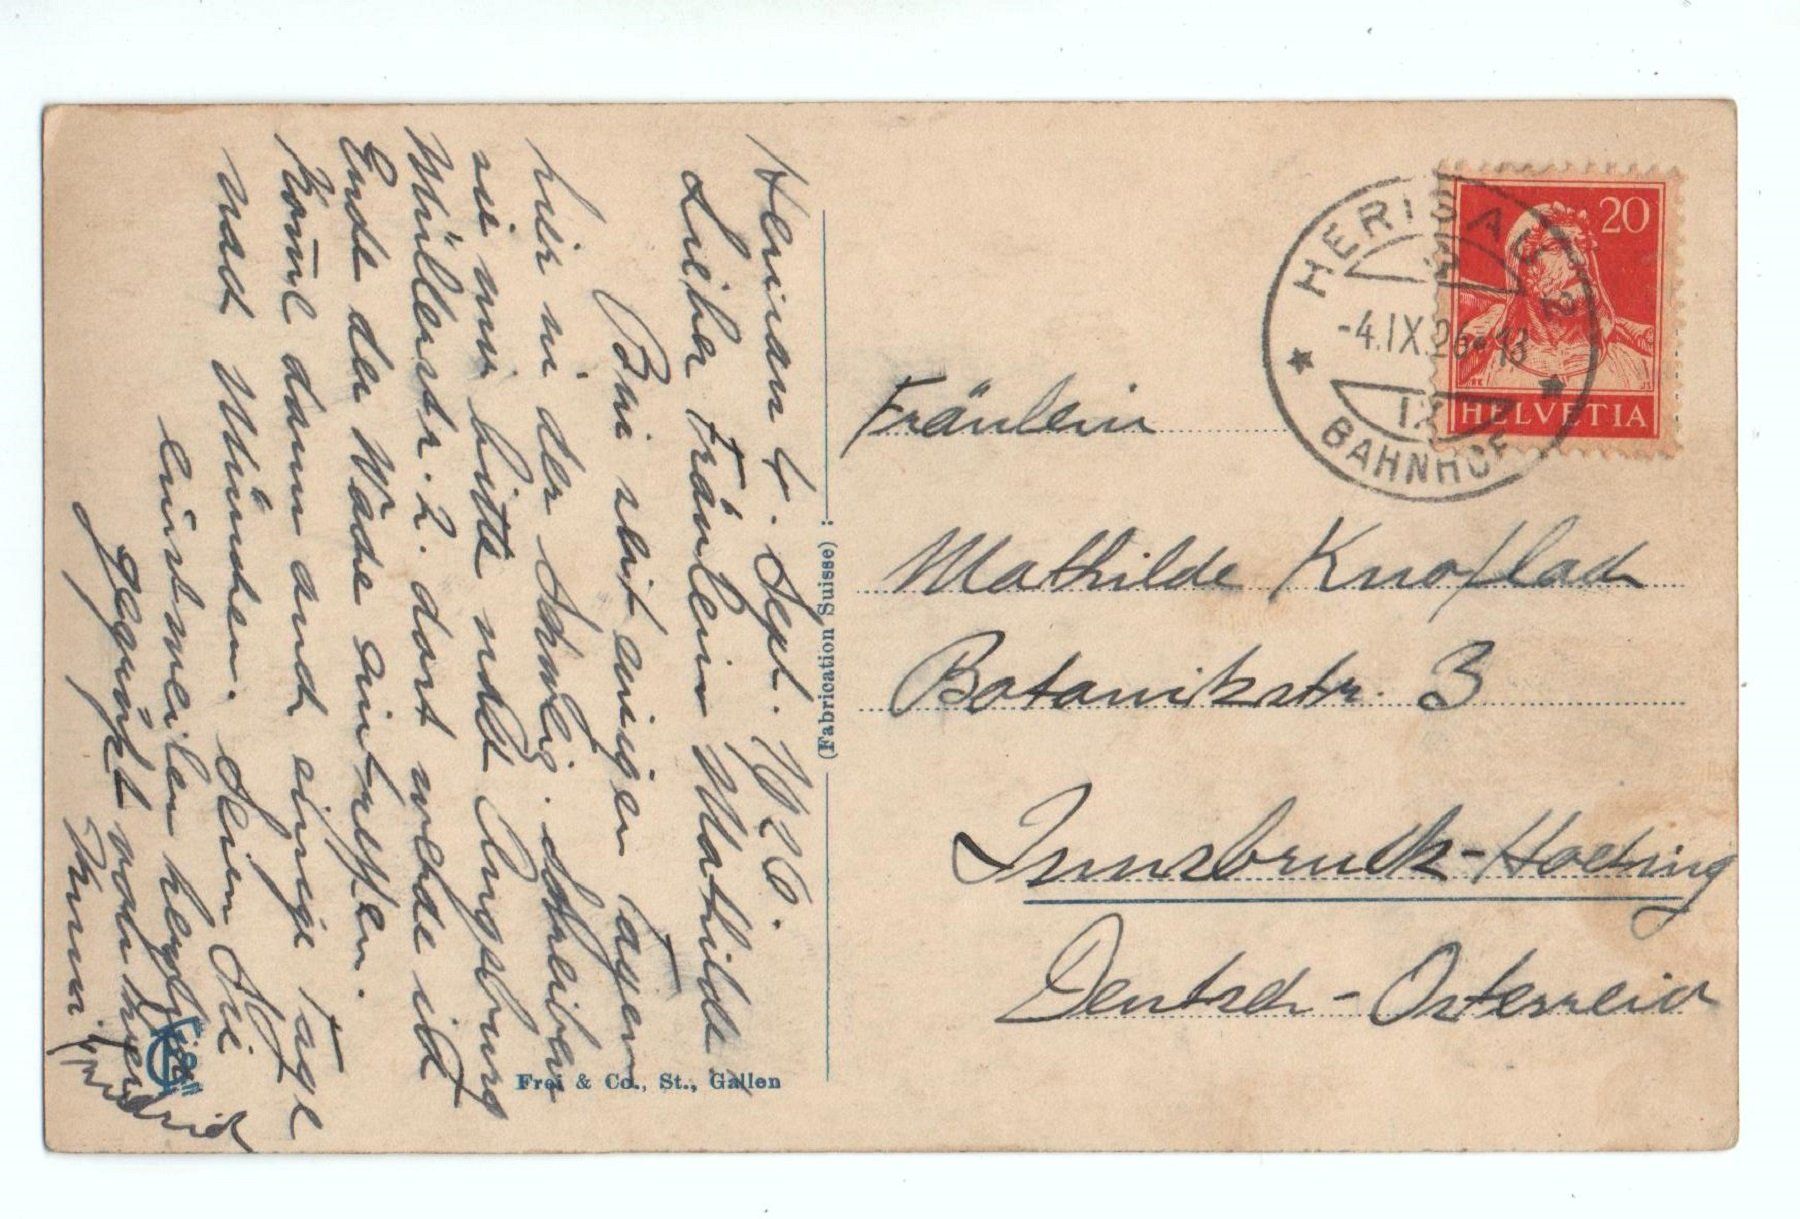 Herisau 4. Sept. 1926.
Liebes Fräulein Mathilde!
Bin seit einigen Tagen
hier in der Schweiz. Schreiben
sie mir bitte nach Augsburg
Müllerstr. 2. dort werde ich
Ende der Woche eintreffen.
Komme dann auch einige Tage
nach München. Seien Sie
einstweilen herzlich
gegrüßt von Ihrem
Friedrich
(Fabrication Suisse)
Frei & Co., St., Gallen
HERISAU 2
-4.IX.26-13
IX
BAHNHOF
20
HELVETIA
Fräulein
Mathilde Knoflach
Botanikstr. 3
Innsbruck-Hoetting
Deutsch-Österreich